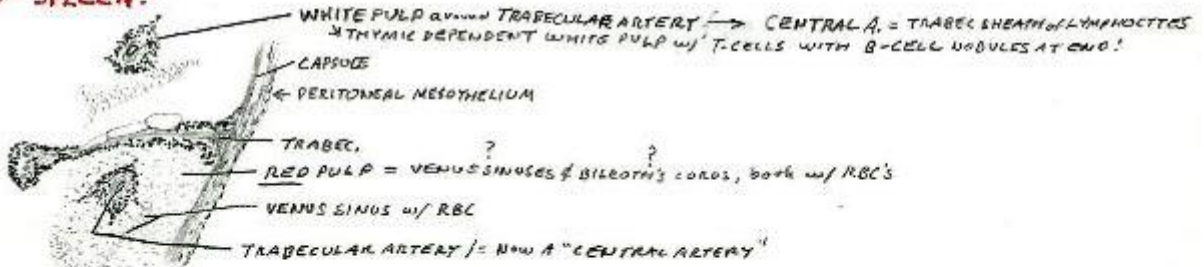 SPLEEN:
WHITE PULP around TRABECULAR ARTERY → CENTRAL A. = TRABEC SHEATH of LYMPHOCYTES
THYMIC DEPENDENT WHITE PULP w/ T-CELLS WITH B-CELL NODULES AT END!
CAPSULE
← PERITONEAL MESOTHELIUM
TRABEC.
? ?
RED PULP = VENUS SINUSES & BILROTH'S CORDS, both w/ RBC'S
VENUS SINUS w/ RBC
TRABECULAR ARTERY /= NOW A "CENTRAL ARTERY"